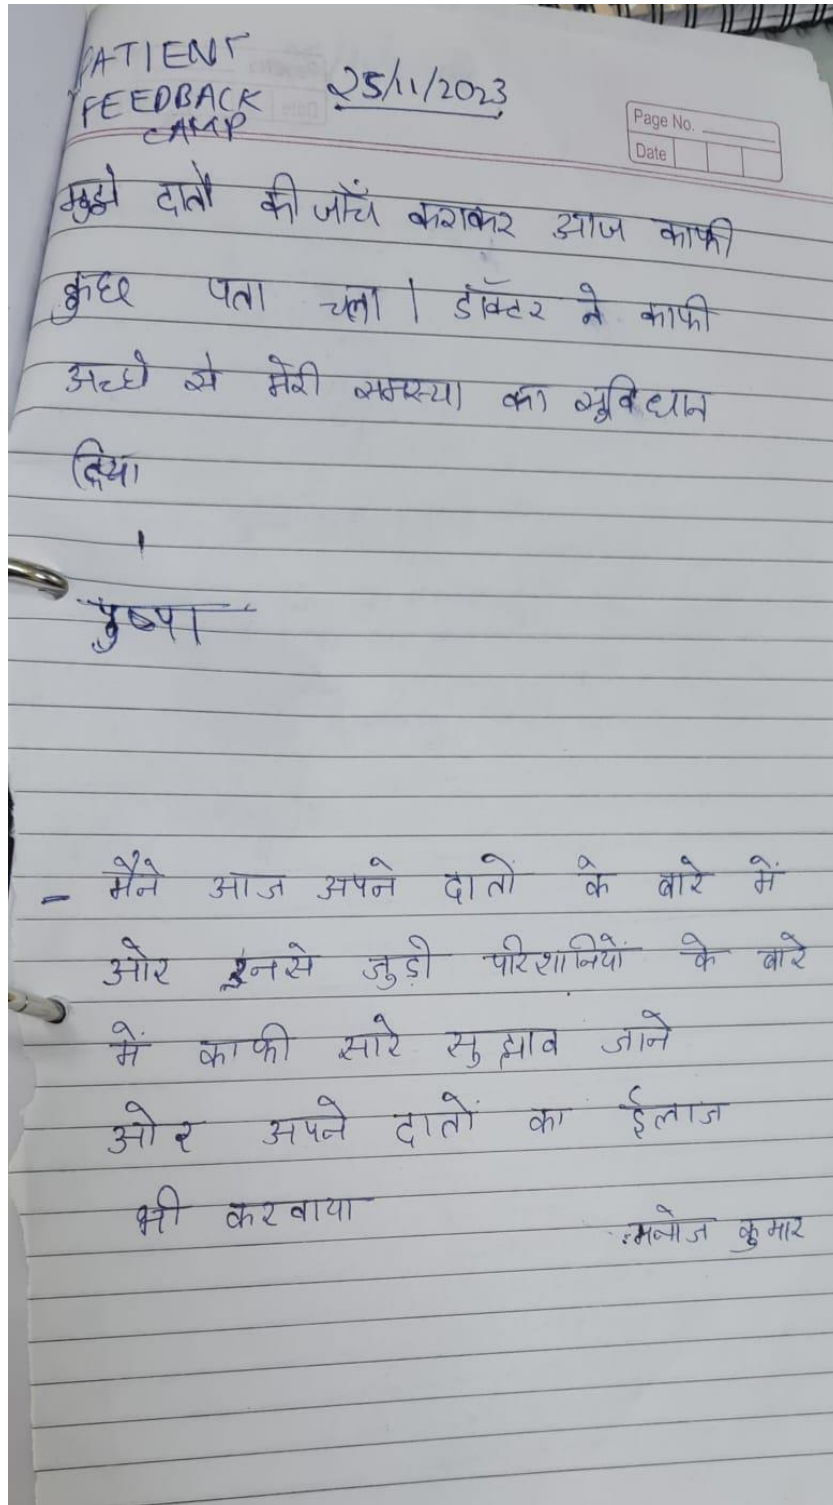 PATIENT
FEEDBACK
CAMP
25/11/2023
Page No.
Date
मुझे दातो की जाँच कराकर आज काफी
कुछ पता चला । डॉक्टर ने काफी
अच्छे से मेरी समस्या का सुविधान
दिया
।
पुष्पा
- मैने आज अपने दातो के बारे में
ओर इनसे जुड़ी परिशानियों के बारे
में काफी सारे सुझाव जाने
ओर अपने दातों का ईलाज
भी करवाया
मनोज कुमार